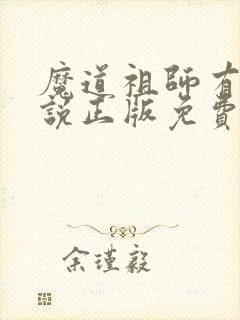 魔道祖師有
說正版免費
余瑾毅